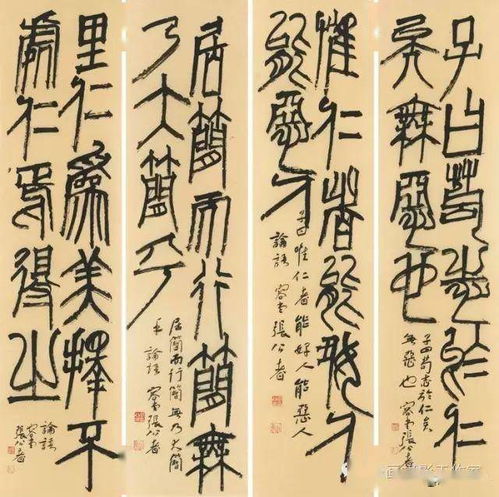 子曰苟志於仁
矣無惡也
子曰苟志於仁矣
無惡也 張公者
惟仁者能好人
能惡人
子曰惟仁者能好人能惡人
論語 張公者
居簡而行簡無
乃大簡乎
居簡而行簡無乃大簡
乎 論語 張公者
里仁為美擇不
處仁焉得
論語
張公者